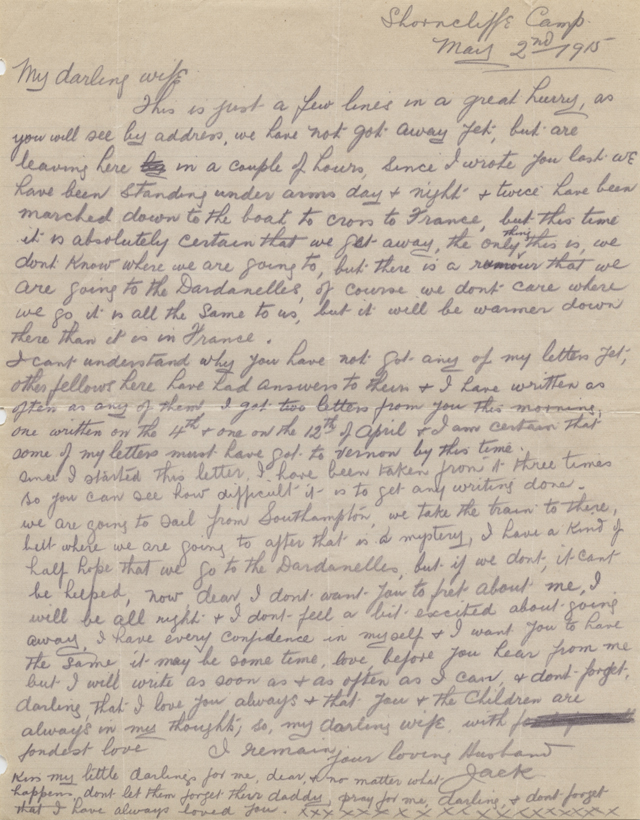 Shorncliffe Camp.
May 2nd 1915
My darling wife
This is just a few lines in a great hurry, as
you will see by address, we have not got away yet, but are
leaving here in a couple of hours, since I wrote you last we
have been standing under arms day & night & twice have been
marched down to the boat, to cross to France, but this time
it is absolutely certain that we get away, the only thing this is, we
dont know where we are going to, but there is a rumour that we
are going to the Dardanelles, of course we dont care where
we go it is all the same to us, but it will be warmer down
there than it is in France.
I cant understand why you have not got any of my letters yet,
other fellows here have had answers to theirs & I have written as
often as any of them, I got two letters from you this morning,
one written on the 4th & one on the 12th of April & I am certain that
some of my letters must have got to Vernon by this time.
since I started this letter, I have been taken from it three times
so you can see how difficult it is to get any writing done.
we are going to sail from Southampton, we take the train to there,
but where we are going to after that is a mystery, I have a kind of
half hope that we go to the Dardanelles, but if we dont, it cant
be helped, now dear I dont want you to fret about me, I
will be all right & I dont feel a bit excited about going
away, I have every confidence in myself & I want you to have
the same, it may be some time, love, before you hear from me
but I will write as soon as & as often as I can, & dont forget,
darling, that I love you always & that you & the Children are
always in my thoughts, so, my darling wife, with
fondest love I remain your loving Husband
Jack
Kiss my little darlings for me, dear, & no matter what
happens, dont let them forget their daddy, pray for me, darling, & dont forget
that I have always loved you. x x x x x x x x x x x x x